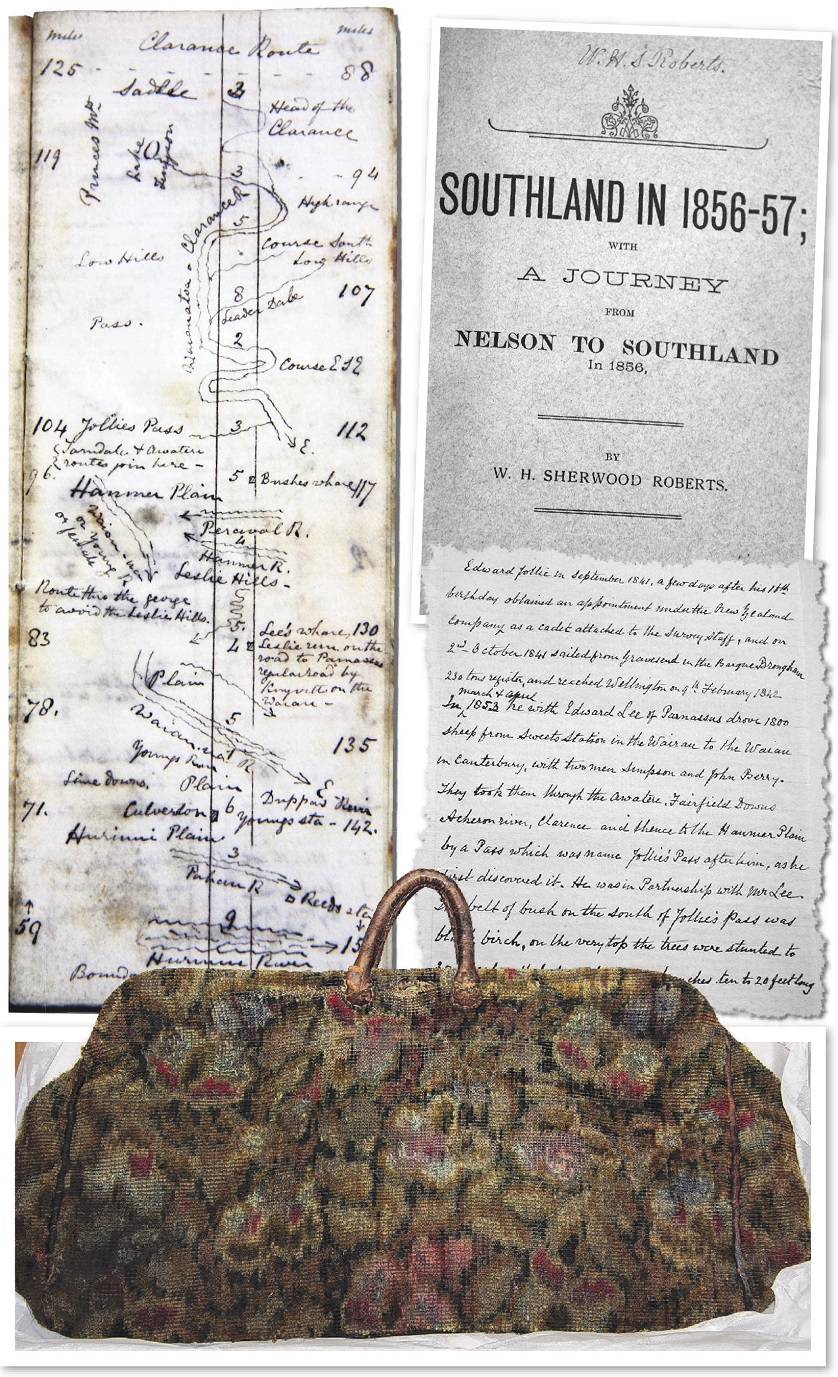 miles
miles
Clarance Route
125
88
Saddle
3
Head of the
Clarance
Princes Mts
119
Lake
3
94
High range
Clarance R
5
Course South
Low Hills
Low Hills
8
107
Leader Dale
Pass.
2
Course E S E
104 Jollies Pass
3
112
E.
{Tarndale & Awatere
routes join here -
96.
5
Bushes whare 117
Hanmer Plain
Percival R.
4
Hanmer R.
Leslie Hills -
Route thro the george
to avoid the Leslie Hills.
5
83
4
Lee's whare, 130
Leslie run on the
road to Parnassus
regular road by
on the
Waiau -
Plain
78.
5
135
Waiau-ua R
E
Youngs Run
Plain
Lime downs.
Culverton
6
Youngs sta - 142.
71.
Hurinui Plain
3
Pahau R
Reeds sta
59
9
15
Hurinui River
Bound
W. H. S. Roberts.
SOUTHLAND IN 1856-57;
WITH
A JOURNEY
FROM
NELSON TO SOUTHLAND
In 1856,
BY
W. H. SHERWOOD ROBERTS.
Edward Jollie in September 1841, a few days after his 16th
birthday obtained an appointment under the New Zealand
Company as a cadet attached to the Survey staff, and on
2nd October 1841 sailed from Gravesend in the Barque Brougham
230 tons register, and reached Wellington on 9th February 1842
march & april
In 1853 he with Edward Lee of Parnassus drove 1800
sheep from Sweets Station in the Wairau to the Waiau
in Canterbury, with two men Simpson and John Berry.
They took them through the Awatere, Fairfield Downs
Acheron river, Clarence and thence to the Hanmer Plain
by a Pass which was name Jollie's Pass after him, as he
first discovered it. He was in Partnership with Mr Lee
belt of bush on the south of Jollie's Pass was
birch, on the very top the trees were stunted to
ten to 20 feet long